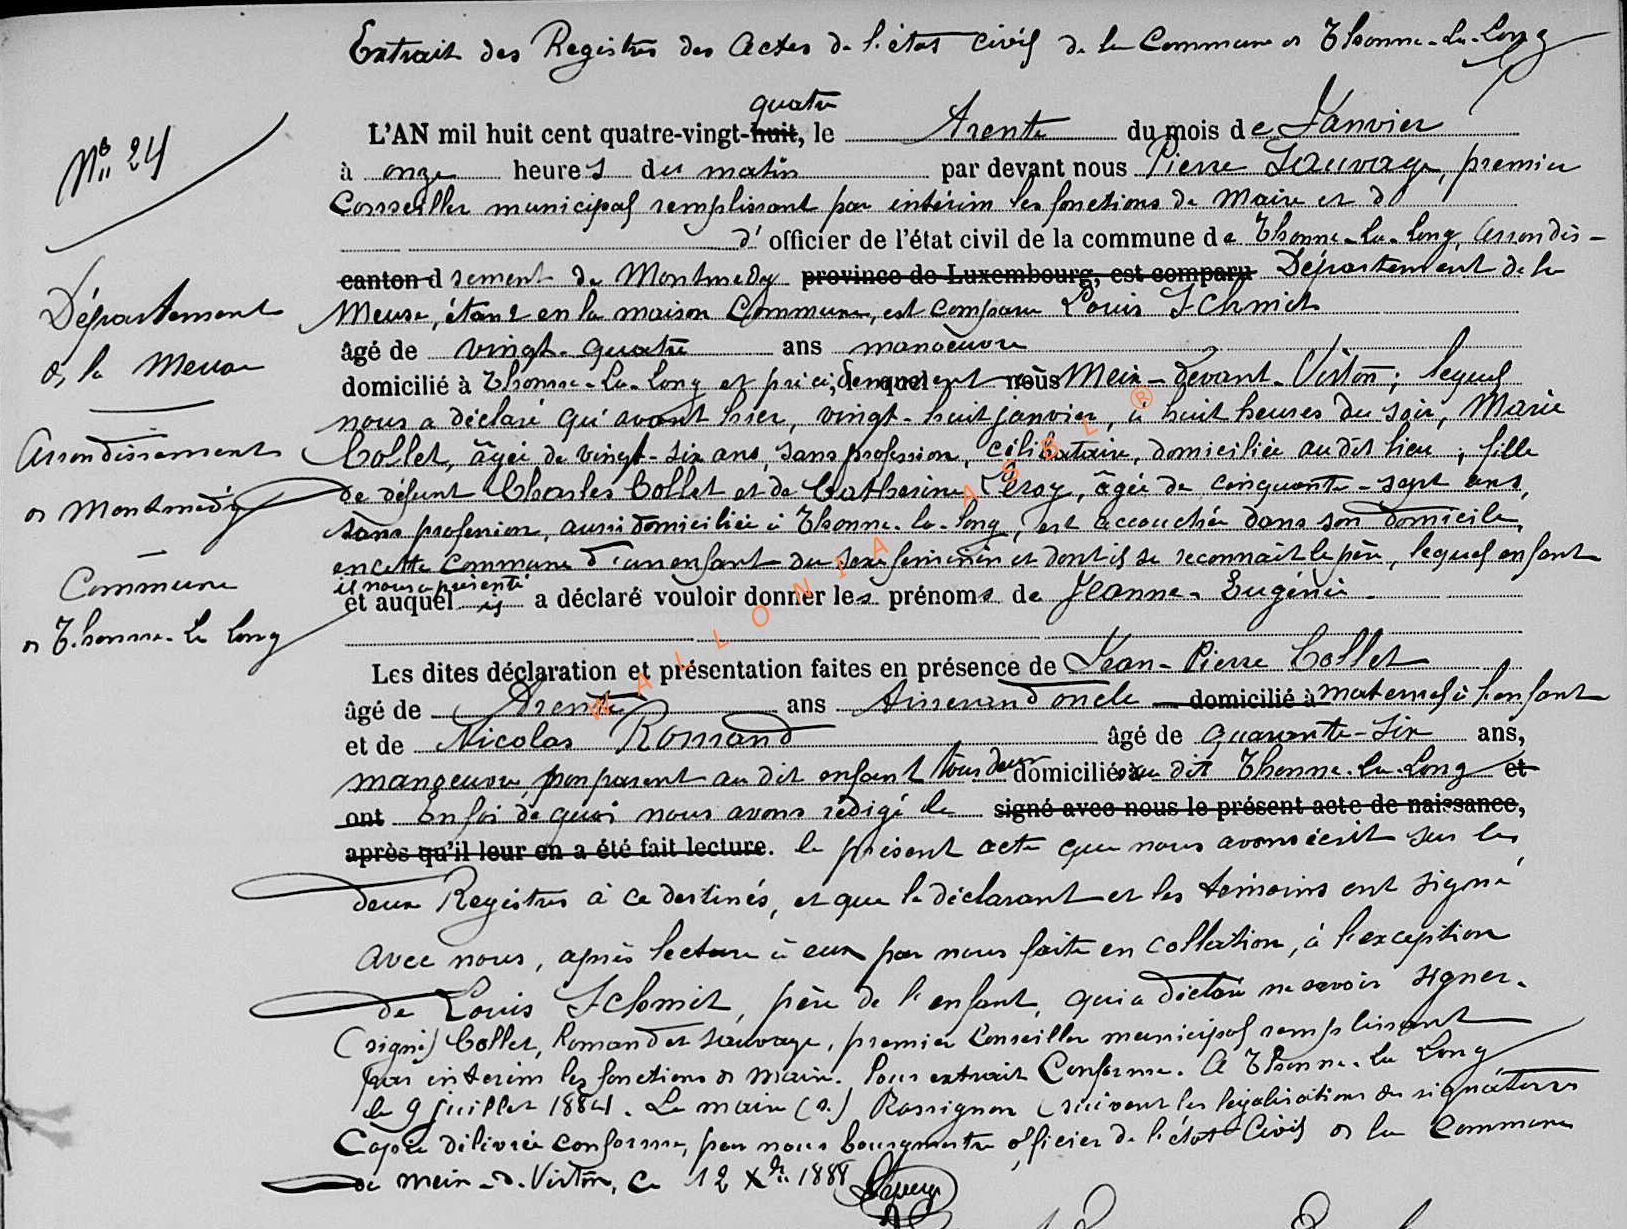 Extrait des Registres des Actes de l'état civil de la Commune de Thonne-la-Long
quatre
L'AN mil huit cent quatre-vingt-huit, le trente du mois de Janvier
N° 24
à onze heures du matin par devant nous Pierre Sauvage, premier
Conseiller municipal remplissant par intérim les fonctions de Maire et d
d'officier de l'état civil de la commune de Thonne-la-Long, arrondis-
canton d sement de Montmedy province de Luxembourg, est comparu Département de la
Département
Meuse, étant en la maison Commune, est comparu Louis Schmit
âgé de vingt-quatre ans manoeuvre
de la Meuse
domicilié à Thonne-la-Long et précédemment à Meix-devant-Virton; lequel
nous a déclaré qu'avant hier, vingt-huit janvier, à huit heures du soir, Marie
Arrondissement
Collet, âgée de vingt-six ans, sans profession, célibataire, domiciliée audit lieu, fille
de défunt Charles Collet et de Catherine Leroy, âgée de cinquante-sept ans,
de Montmédy
sans profession, aussi domiciliée à Thonne-la-Long, est accouchée dans son domicile,
en cette Commune d'un enfant du sexe féminin et dont il se reconnaît le père, lequel enfant
Commune
il nous a présenté
et auquel il a déclaré vouloir donner les prénoms de Jeanne-Eugénie.
de Thonne-la Long
Les dites déclaration et présentation faites en présence de Jean-Pierre Collet
âgé de trente ans tisserand oncle domicilié à maternel à l'enfant
et de Nicolas Romand âgé de quarante-six ans,
manoeuvre, non parent au dit enfant tous deux domiciliés au dit Thonne-la-Long et
ont En foi de quoi nous avons rédigé le signé avec nous le présent acte de naissance,
après qu'il leur en a été fait lecture. le présent acte que nous avons écrit sur les
deux Registres à ce destinés, et que le déclarant et les témoins ont signé
avec nous, après lecture à eux par nous faite en collation, à l'exception
de Louis Schmit, père de l'enfant, qui a déclaré ne savoir signer.
(signé) Collet, Romand et Sauvage, premier Conseiller municipal remplissant
par intérim les fonctions de Maire. Pour extrait Conforme. A Thonne-la Long
le 9 juillet 1884. Le maire (s.) Rossignon (suivent les légalisations de signatures
Copie délivrée conforme, par nous bourgmestre officier de l'état Civil de la Commune
de Meix-d-Virton, ce 12 Xbre 1888
WALLONIA ASBL ®